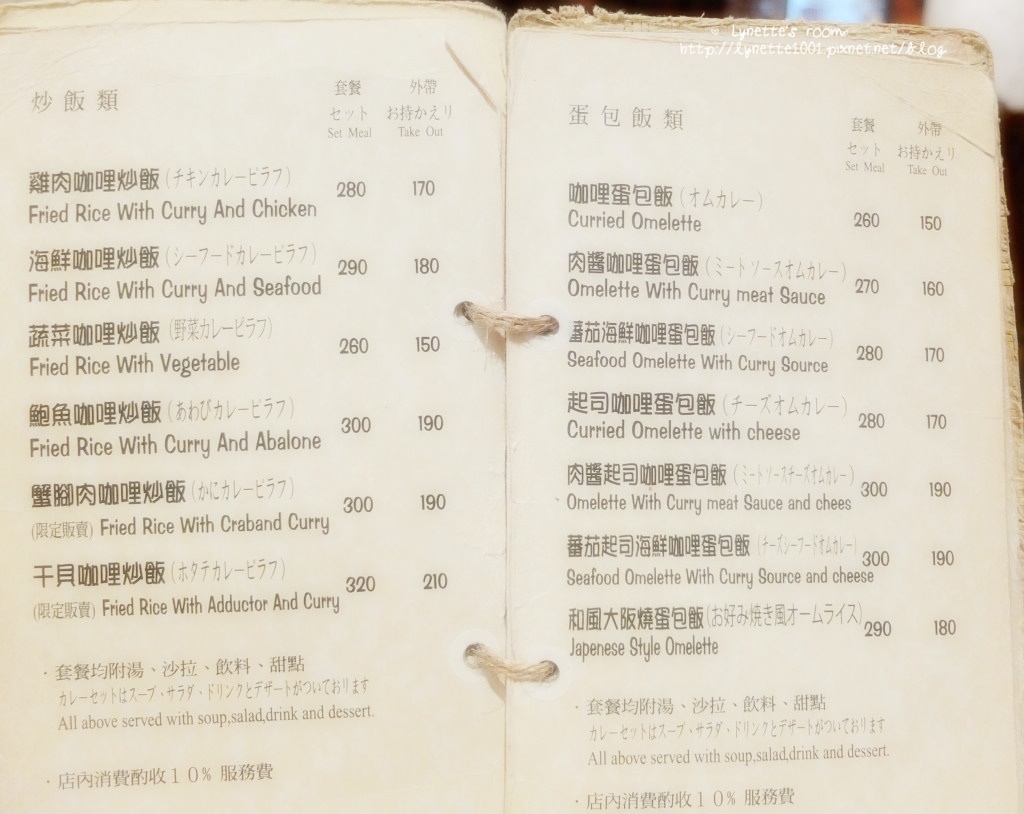 © Lynette's room
http://lynette1001.pixnet.net/blog
炒飯類
套餐 外帶
セット お持かえり
Set Meal Take Out
雞肉咖哩炒飯(チキンカレーピラフ)
Fried Rice With Curry And Chicken 280 170
海鮮咖哩炒飯(シーフードカレーピラフ)
Fried Rice With Curry And Seafood 290 180
蔬菜咖哩炒飯(野菜カレーピラフ)
Fried Rice With Vegetable 260 150
鮑魚咖哩炒飯(あわびカレーピラフ)
Fried Rice With Curry And Abalone 300 190
蟹腳肉咖哩炒飯(かにカレーピラフ)
(限定販賣) Fried Rice With Craband Curry 300 190
干貝咖哩炒飯(ホタテカレーピラフ)
(限定販賣) Fried Rice With Adductor And Curry 320 210
· 套餐均附湯、沙拉、飲料、甜點
カレーセットはスープ・サラダ・ドリンクとデザートがついております
All above served with soup,salad,drink and dessert.
· 店內消費酌收10% 服務費
蛋包飯類
套餐 外帶
セット お持かえり
Set Meal Take Out
咖哩蛋包飯(オムカレー)
Curried Omelette 260 150
肉醬咖哩蛋包飯(ミートソースオムカレー)
Omelette With Curry meat Sauce 270 160
蕃茄海鮮咖哩蛋包飯(シーフードオムカレー)
Seafood Omelette With Curry Source 280 170
起司咖哩蛋包飯(チーズオムカレー)
Curried Omelette with cheese 280 170
肉醬起司咖哩蛋包飯(ミートソースチーズオムカレー)
Omelette With Curry meat Sauce and chees 300 190
蕃茄起司海鮮咖哩蛋包飯(チーズシーフードオムカレー)
Seafood Omelette With Curry Source and cheese 300 190
和風大阪燒蛋包飯(お好み焼き風オームライス)
Japenese Style Omelette 290 180
· 套餐均附湯、沙拉、飲料、甜點
カレーセットはスープ・サラダ・ドリンクとデザートがついております
All above served with soup,salad,drink and dessert.
· 店內消費酌收10% 服務費